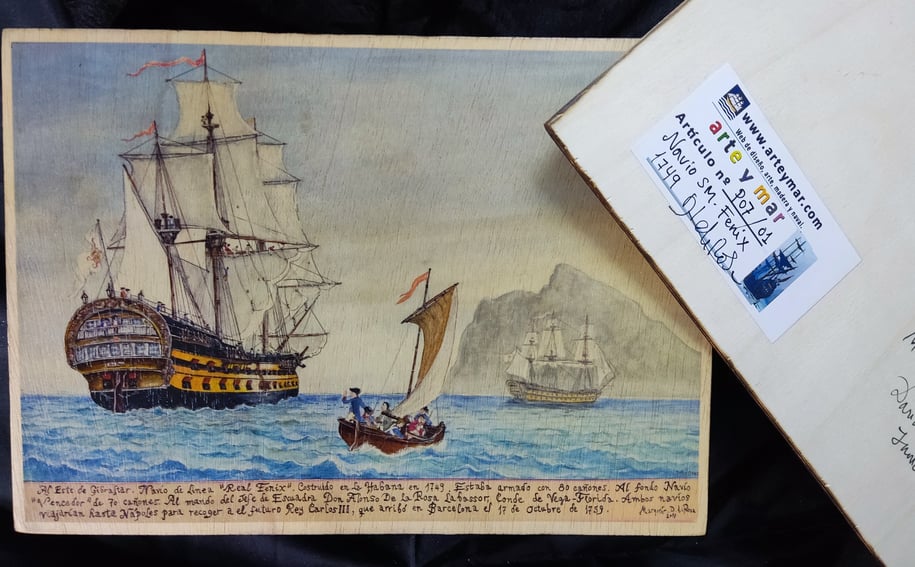 Al Este de Gibraltar. Navio de Linea "Real Fenix". Costruido en La Habana en 1749. Estaba armado con 80 cañones. Al fondo Navio
"Vencedor" de 70 cañones. Al mando del Jefe de Escuadra Don Alfonso De La Rosa Labassor, Conde de Vega Florida. Ambos navios
viajarían hasta Nápoles para recoger a el futuro Rey Carlos III, que arribó en Barcelona el 17 de Octubre de 1759.
www.arteymar.com
Web de diseño, arte, madera y naval.
arte y mar
Artículo nº P07/01
Navio SM. Fenix
1749